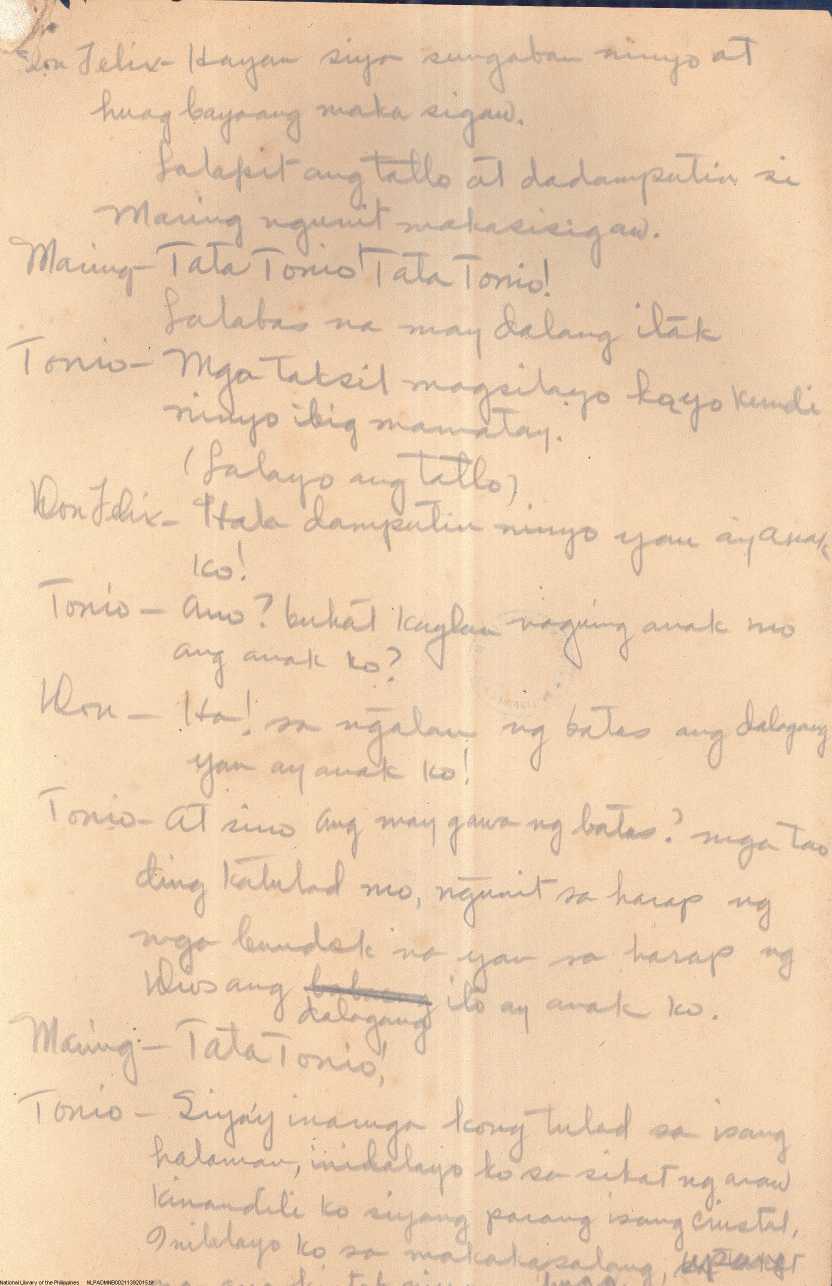 Don Felix - Hayan siya sungaban ninyo at
huag bayaang maka sigaw.
Lalapit ang tatlo at dadamputin si
Maring ngunit makasisigaw.
Maring - Tata Tonio! Tata Tonio!
Lalabas na may dalang iták
Tonio - Mga taksil magsilayo kayo kundi
ninyo ibig mamatay.
(Lalayo ang tatlo)
Don Felix - Hala damputin ninyo yan ay anak
ko!
Tonio - Ano? bukat kaylan naging anak mo
ang anak ko?
Don - Ha! sa ngalan ng batas ang dalagang
yan ay anak ko!
Tonio - At sino ang may gawa ng batas? mga tao
ding katulad mo, ngunit sa harap ng
mga bundok na yan sa harap ng
Dios ang babaeng ito ay anak ko.
dalagang
Maring - Tata Tonio!
Tonio - Siya'y inaruga kong tulad sa isang
halaman, inilalayo ko sa sikat ng araw
kinandili ko siyang parang isang cristal,
Inilalayo ko sa makakasalang, upang
National Library of the Philippines